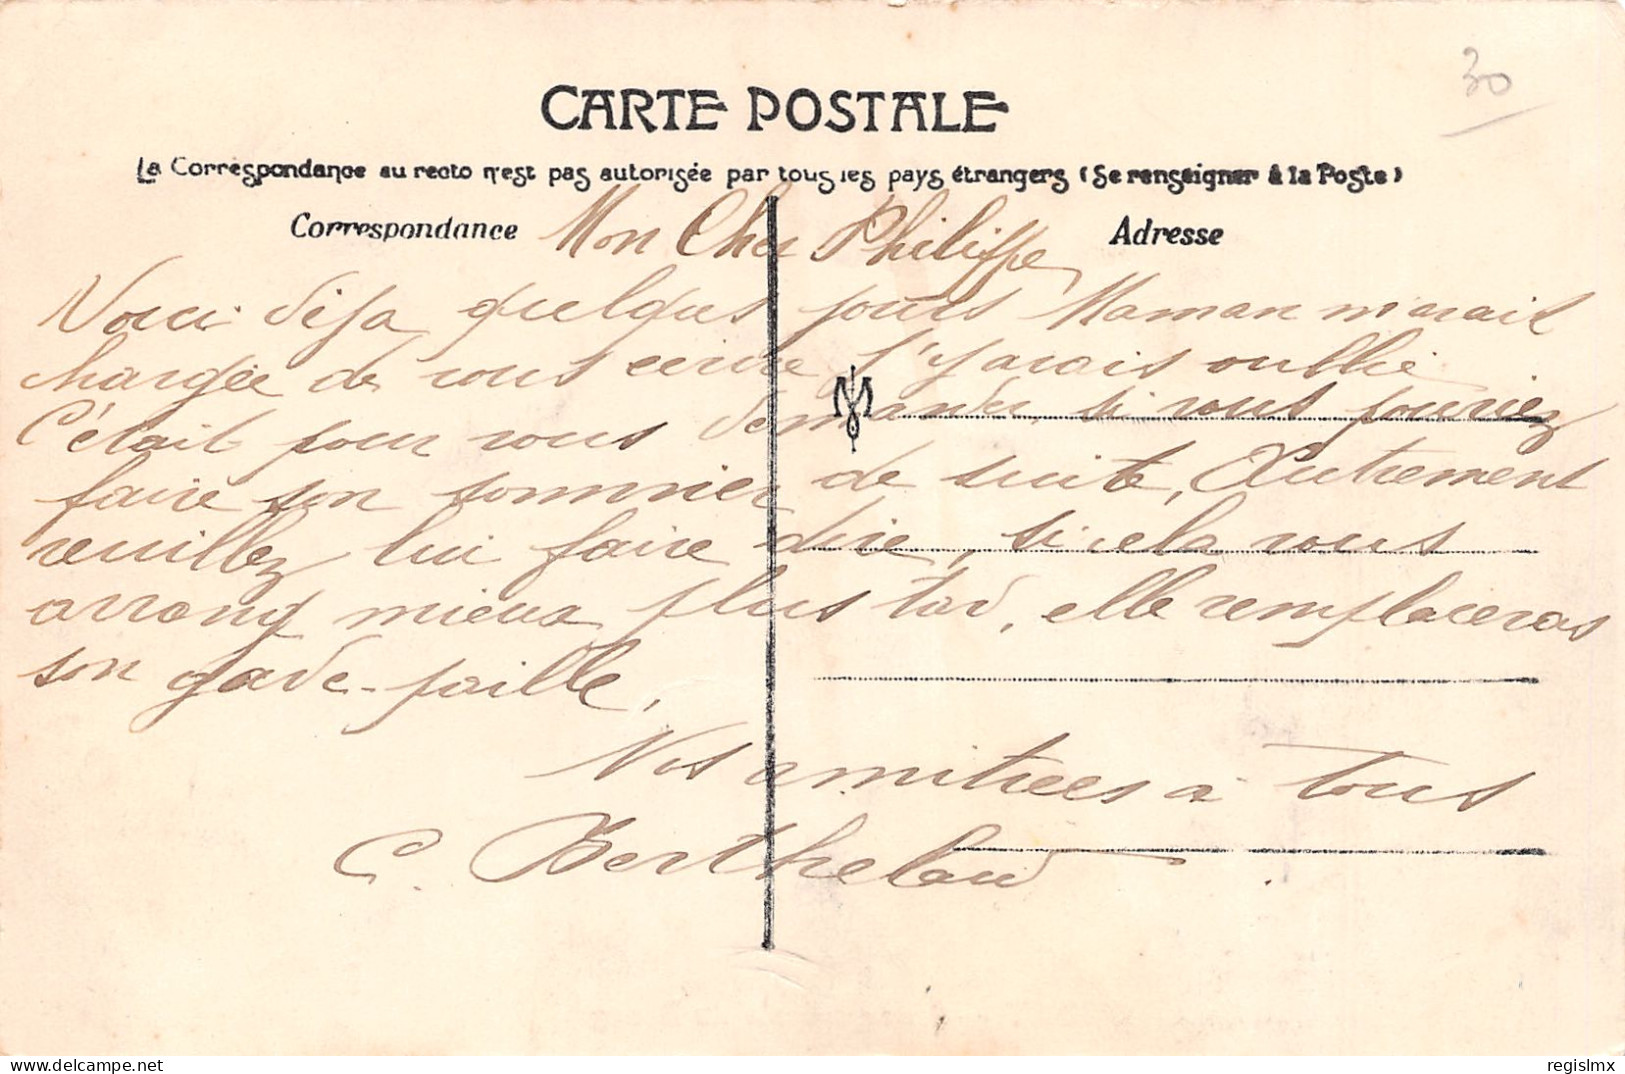 30
CARTE POSTALE
La Correspondance au recto n'est pas autorisée par tous les pays étrangers (Se renseigner à la Poste)
Correspondance
Adresse
Mon Cher Philippe
Voici déja quelques jours Maman m'avait
chargée de vous ecrire j'avais oublié
C'était pour vous demander, si vous pouviez
faire son sommier de suite, Autrement
veuillez lui faire dire, si cela vous
arrang mieux plus tard, elle remplaceras
son garde-paille,
Nos amitiées à tous
C. Berthelaud
regislmx